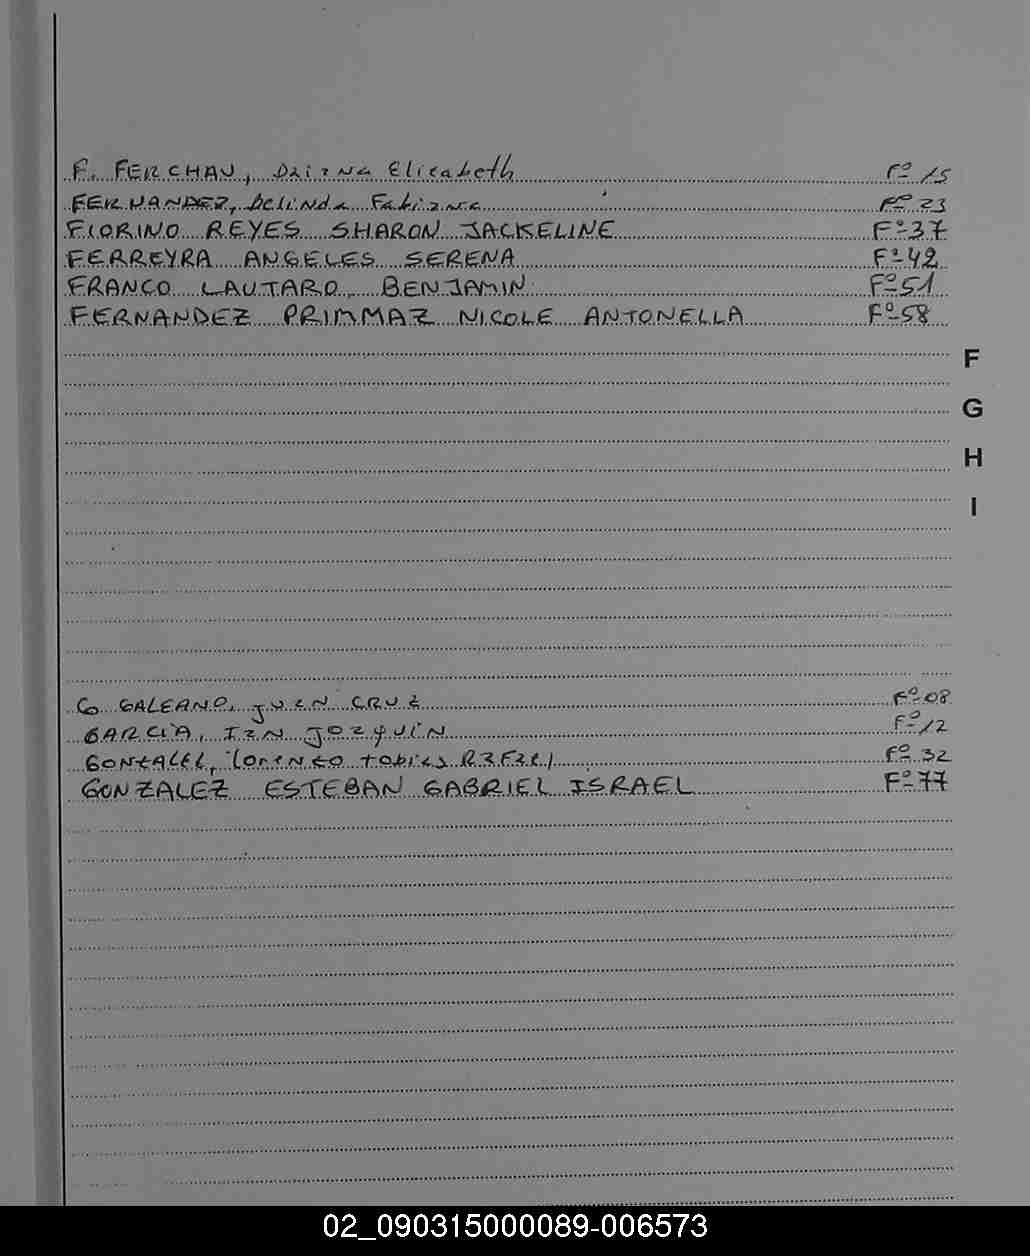 F. FERCHAU, Daiana Elizabeth Fº 15
FERNANDEZ, belinda Fabiana Fº 23
FIORINO REYES SHARON JACKELINE Fº-37
FERREYRA ANGELES SERENA Fº-42
FRANCO LAUTARO BENJAMIN Fº-51
FERNANDEZ PRIMMAZ NICOLE ANTONELLA Fº-58
F
G
H
I
G GALEANO, JUAN CRUZ Fº-08
GARCIA, IAN JOAQUIN Fº-12
GONZALEZ, Lorenzo tobias Rafael Fº 32
GONZALEZ ESTEBAN GABRIEL ISRAEL Fº-77
02_090315000089-006573